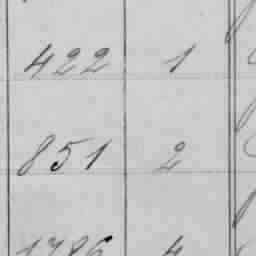 422 1
851 2
1786 4